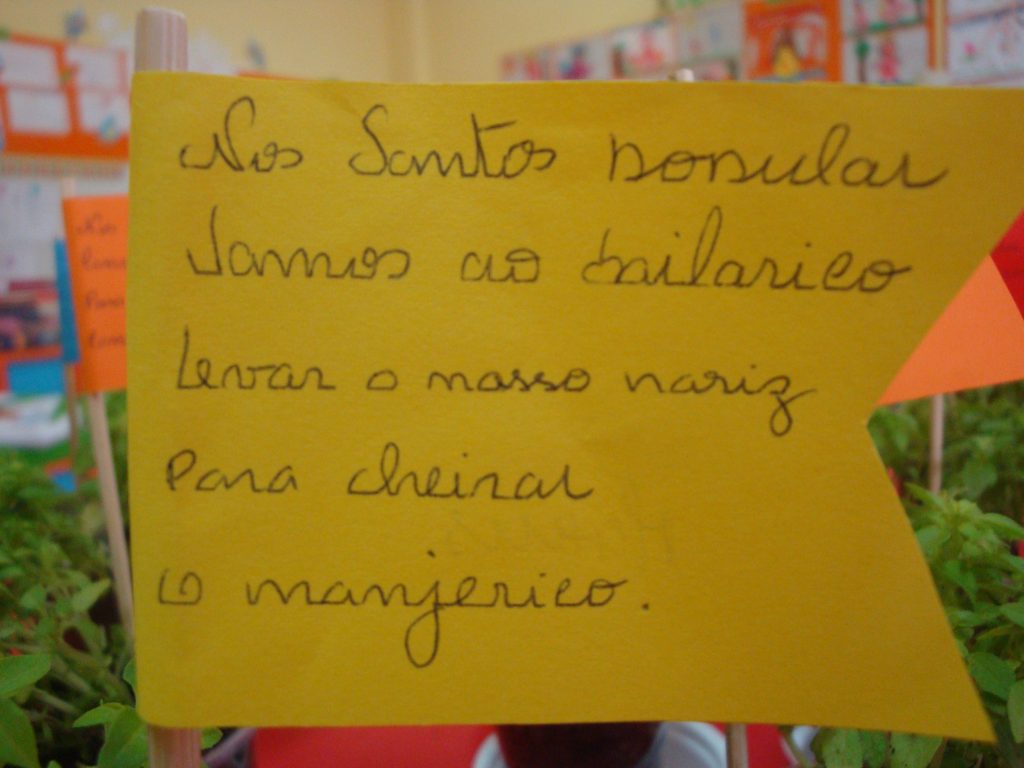 Nos Santos popular
Vamos ao bailarico
levar o nosso nariz
para cheirar
o manjerico.